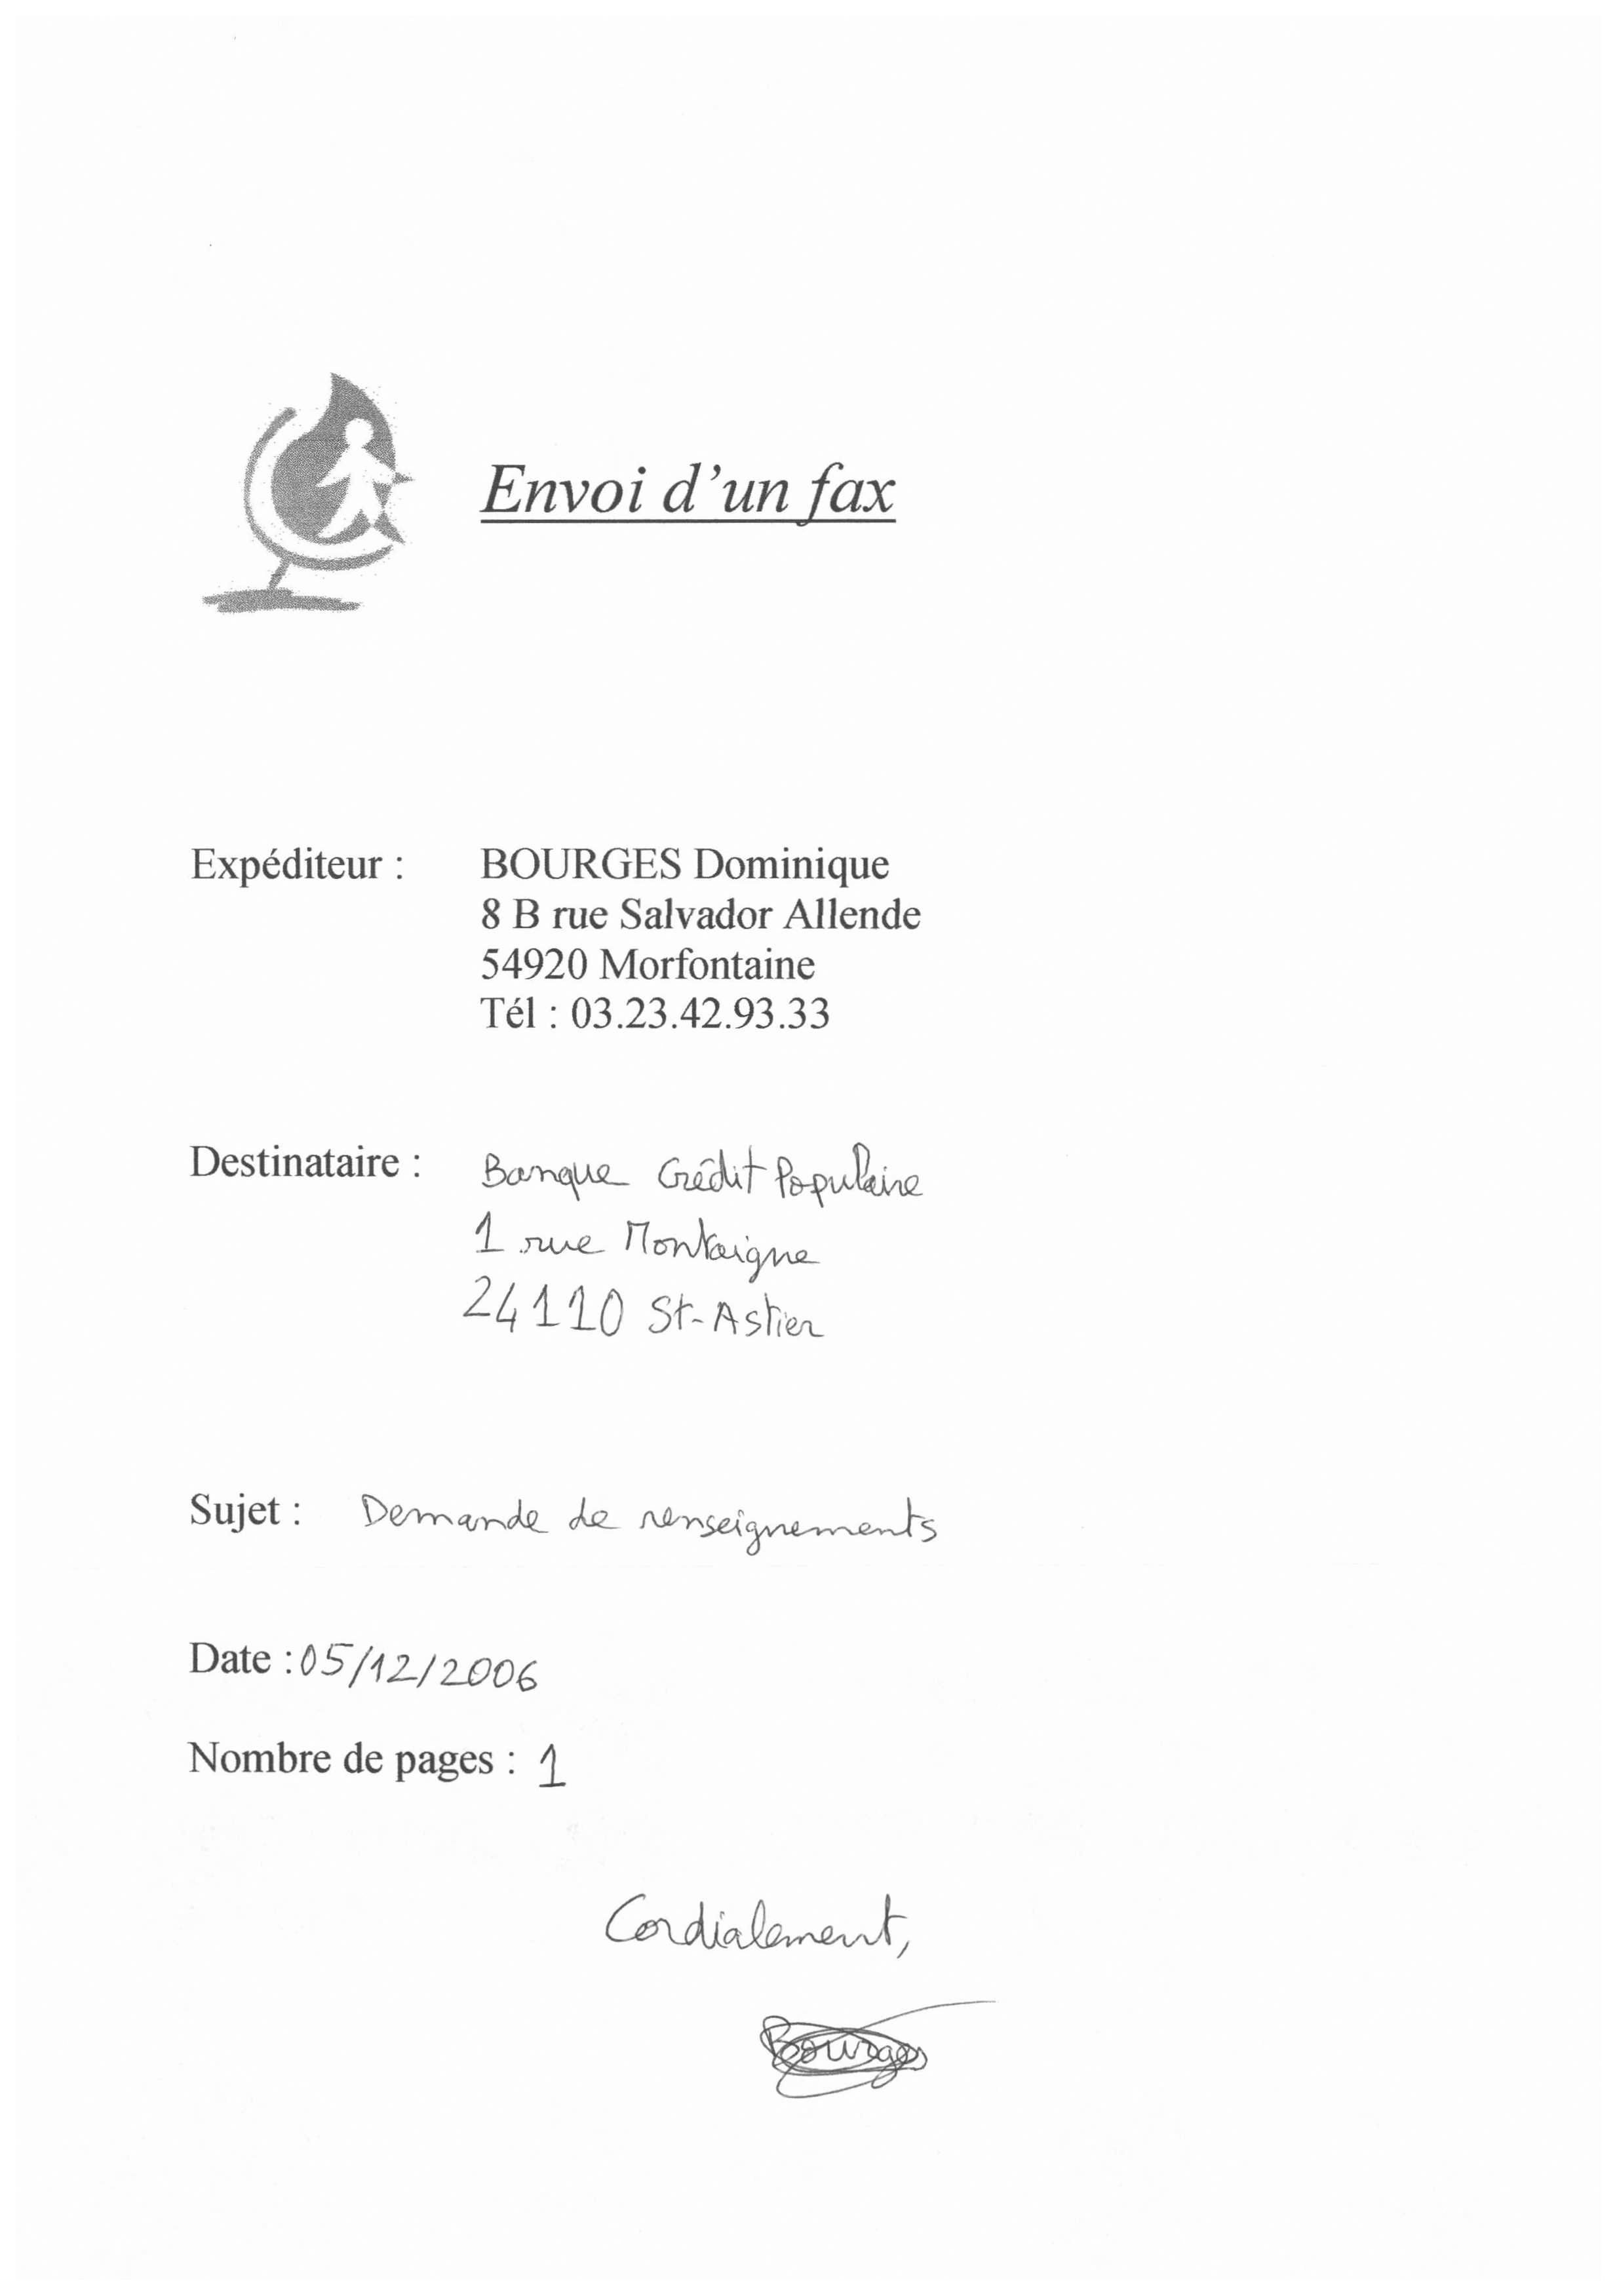 Envoi d'un fax
Expéditeur : BOURGES Dominique
8 B rue Salvador Allende
54920 Morfontaine
Tél : 03.23.42.93.33
Destinataire : Banque Crédit Populaire
1 rue Montaigne
24110 St-Astier
Sujet : Demande de renseignements
Date : 05/12/2006
Nombre de pages : 1
Cordialement,
Bourges